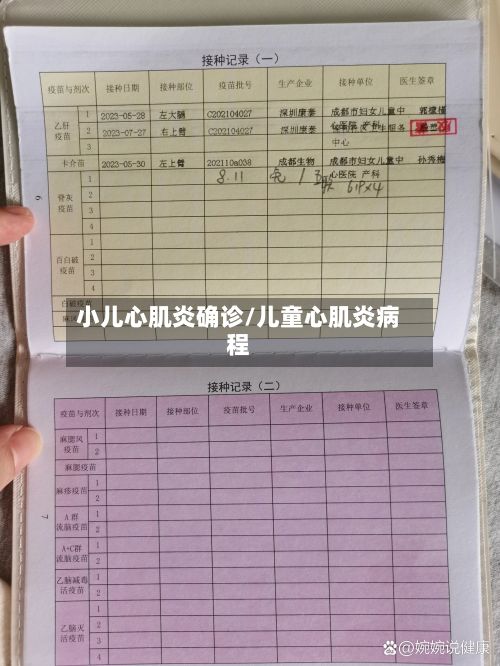 接种记录（一）
疫苗与剂次 接种日期 接种部位 疫苗批号 生产企业 接种单位 医生签章
乙肝疫苗 1 2023-05-28 左大腿 C202104027 深圳康泰 成都市妇女儿童中心医院 产科
2 2023-07-27 右上臂 C202104027 深圳康泰
中心
卡介苗 2023-05-30 左上臂 202110a038 成都生物 成都市妇女儿童中心医院 产科 孙秀梅
脊灰疫苗 1 8.11
2
3
4
百白破疫苗 1
2
3
4
白破疫苗
小儿心肌炎确诊/儿童心肌炎病
程
6
接种记录（二）
疫苗与剂次 接种日期 接种部位 疫苗批号 生产企业 接种单位 医生签章
麻腮风疫苗 1
2
麻腮疫苗
麻疹疫苗 1
2
A 群流脑疫苗 1
2
A+C群流脑疫苗 1
2
乙脑减毒活疫苗 1
2
乙脑灭活疫苗 1
2
3
4
7
@婉婉说健康